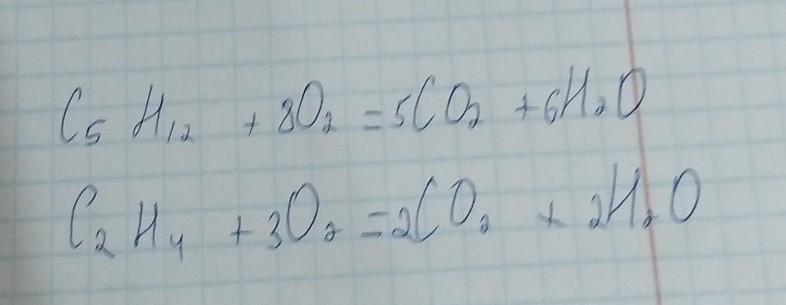 C₅H₁₂ + 8O₂ = 5CO₂ + 6H₂O
C₂H₄ + 3O₂ = 2CO₂ + 2H₂O